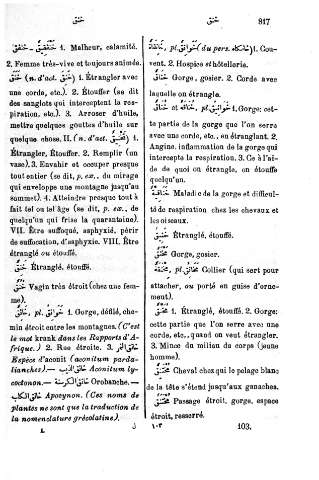 خنق
خنق
817
خنفقيق — 1. Malheur, calamité.
2. Femme très-vive et toujours animée.
خنق (n. d'act. خنق) 1. Étrangler avec
une corde, etc.). 2. Étouffer (se dit
des sanglots qui interceptent la res-
piration, etc.). 3. Arroser d'huile,
mettre quelques gouttes d'huile sur
quelque chose. II. (n. d'act. تخنيق) 1.
Étrangler, Étouffer. 2. Remplir (un
vase). 3. Envahir et occuper presque
tout entier (se dit, p. ex., du mirage
qui enveloppe une montagne jusqu'au
sommet). 4. Atteindre presque tout à
fait tel ou tel âge (se dit, p. ex., de
quelqu'un qui frise la quarantaine).
VII. Être suffoqué, asphyxié, périr
de suffocation, d'asphyxie. VIII. Être
étranglé ou étouffé.
خنق Étranglé, étouffé.
Vagin très étroit (chez une fem-
me).
خانق, pl. خوانق 1. Gorge, défilé, che-
min étroit entre les montagnes. (C'est
le mot krank dans les Rapports d'A-
frique.) 2. Rue étroite. 3. خانق النمر
Espèce d'aconit (aconitum parda-
lianches).— خانق الذئب Aconitum ly-
coctonon.— خانق الكرسنة Orobanche.—
خانق الكلب Apocynon. (Ces noms de
plantes ne sont que la traduction de
la nomenclature grécolatine).
خانقاه, pl. خوانق (du pers. خانگاه) 1. Cou-
vent. 2. Hospice et hôtellerie.
خناق Gorge, gosier. 2. Corde avec
laquelle on étrangle.
خناق et خناقة, pl. خوانيق 1. Gorge: cet-
te partie de la gorge que l'on serre
avec une corde, etc., en étranglant. 2.
Angine, inflammation de la gorge qui
intercepte la respiration. 3. Ce à l'ai-
de de quoi on étrangle, on étouffe
quelqu'un.
Maladie de la gorge et difficul-
té de respiration chez les chevaux et
les oiseaux.
خنيق Étranglé, étouffé.
Gorge, gosier.
مخنقة, pl. مخانق Collier (qui sert pour
attacher, ou porté en guise d'orne-
ment).
مخنق 1. Étranglé, étouffé. 2. Gorge:
cette partie que l'on serre avec une
corde, etc., quand on veut étrangler.
3. Mince du milieu du corps (jeune
homme).
Cheval chez qui le pelage blanc
de la tête s'étend jusqu'aux ganaches.
مختنق Passage étroit, gorge, espace
étroit, resserré.
I.
١٠٣
103.